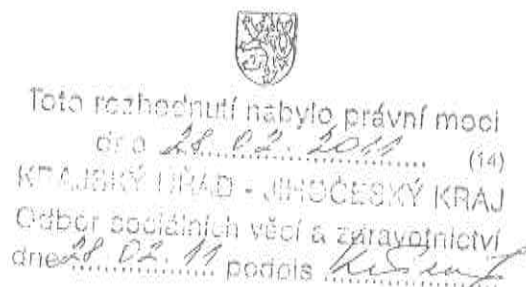 Toto rozhodnutí nabylo právní moci
dne 28. 02. 2011 (14)
KRAJSKÝ ÚŘAD - JIHOČESKÝ KRAJ
Odbor sociálních věcí a zdravotnictví
dne 28. 02. 11 podpis